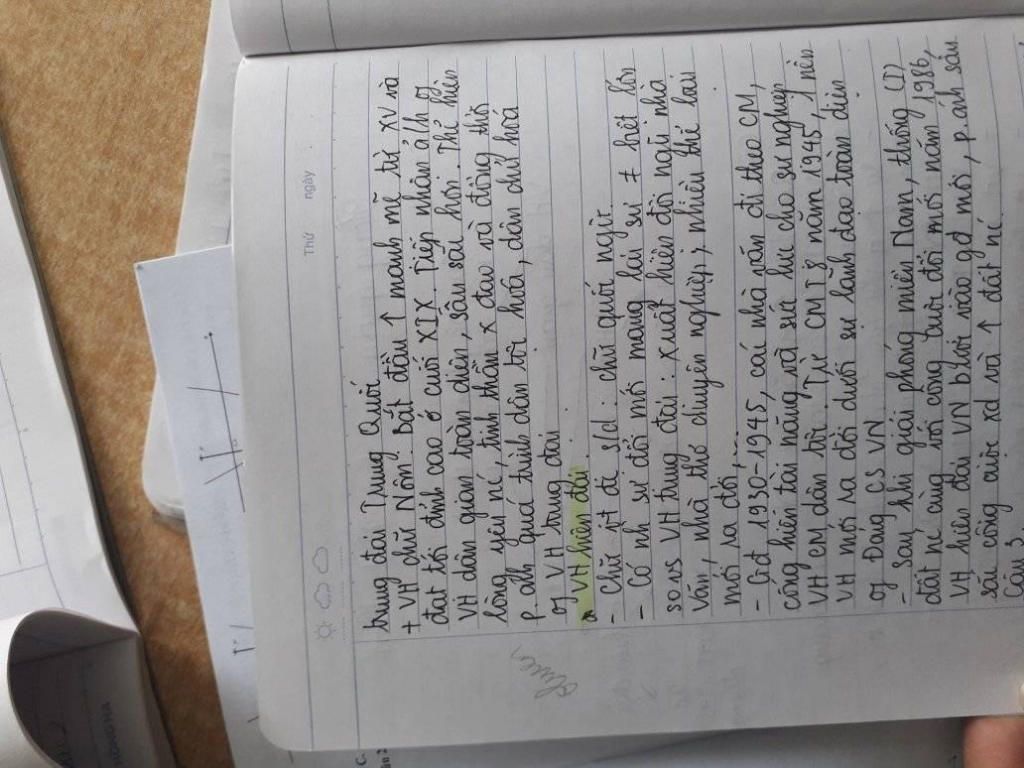 Thứ
ngày
trung đại Trung Quốc
+ VH chữ Nôm: Bắt đầu ↑ mạnh mẽ từ XV và
đạt tới đỉnh cao ở cuối XIX. Tiếp nhận ảh of
VH dân gian toàn diện, sâu sắc hơn. Thể hiện
lòng yêu nc, tinh thần x đạo và đồng thời
p.ảh quá trình dân tộc hoá, dân chủ hoá
of VH trung đại
* VH hiện đại
- Chữ vt di s/d: chữ quốc ngữ
- Có nh sự đổi mới mang lại sự ≠ biệt lớn
so vs VH trung đại: xuất hiện đội ngũ nhà
văn, nhà thơ chuyên nghiệp; nhiều thể loại
mới ra đời,...
- Gđ 1930-1945, các nhà văn đi theo CM,
cống hiến tài năng và sức lực cho sự nghiệp
VH CM dân tộc. Từ CMT8 năm 1945, 1 nền
VH mới ra đời dưới sự lãnh đạo toàn diện
of Đảng CS VN
- Sau khi giải phóng miền Nam, thống (1)
đất nc cùng với công cuộc đổi mới năm 1986,
VH hiện đại VN bước vào gđ mới, p.ánh sâu
sắc công cuộc xd và ↑ đất nc
Câu 3
HỒNG HÀ